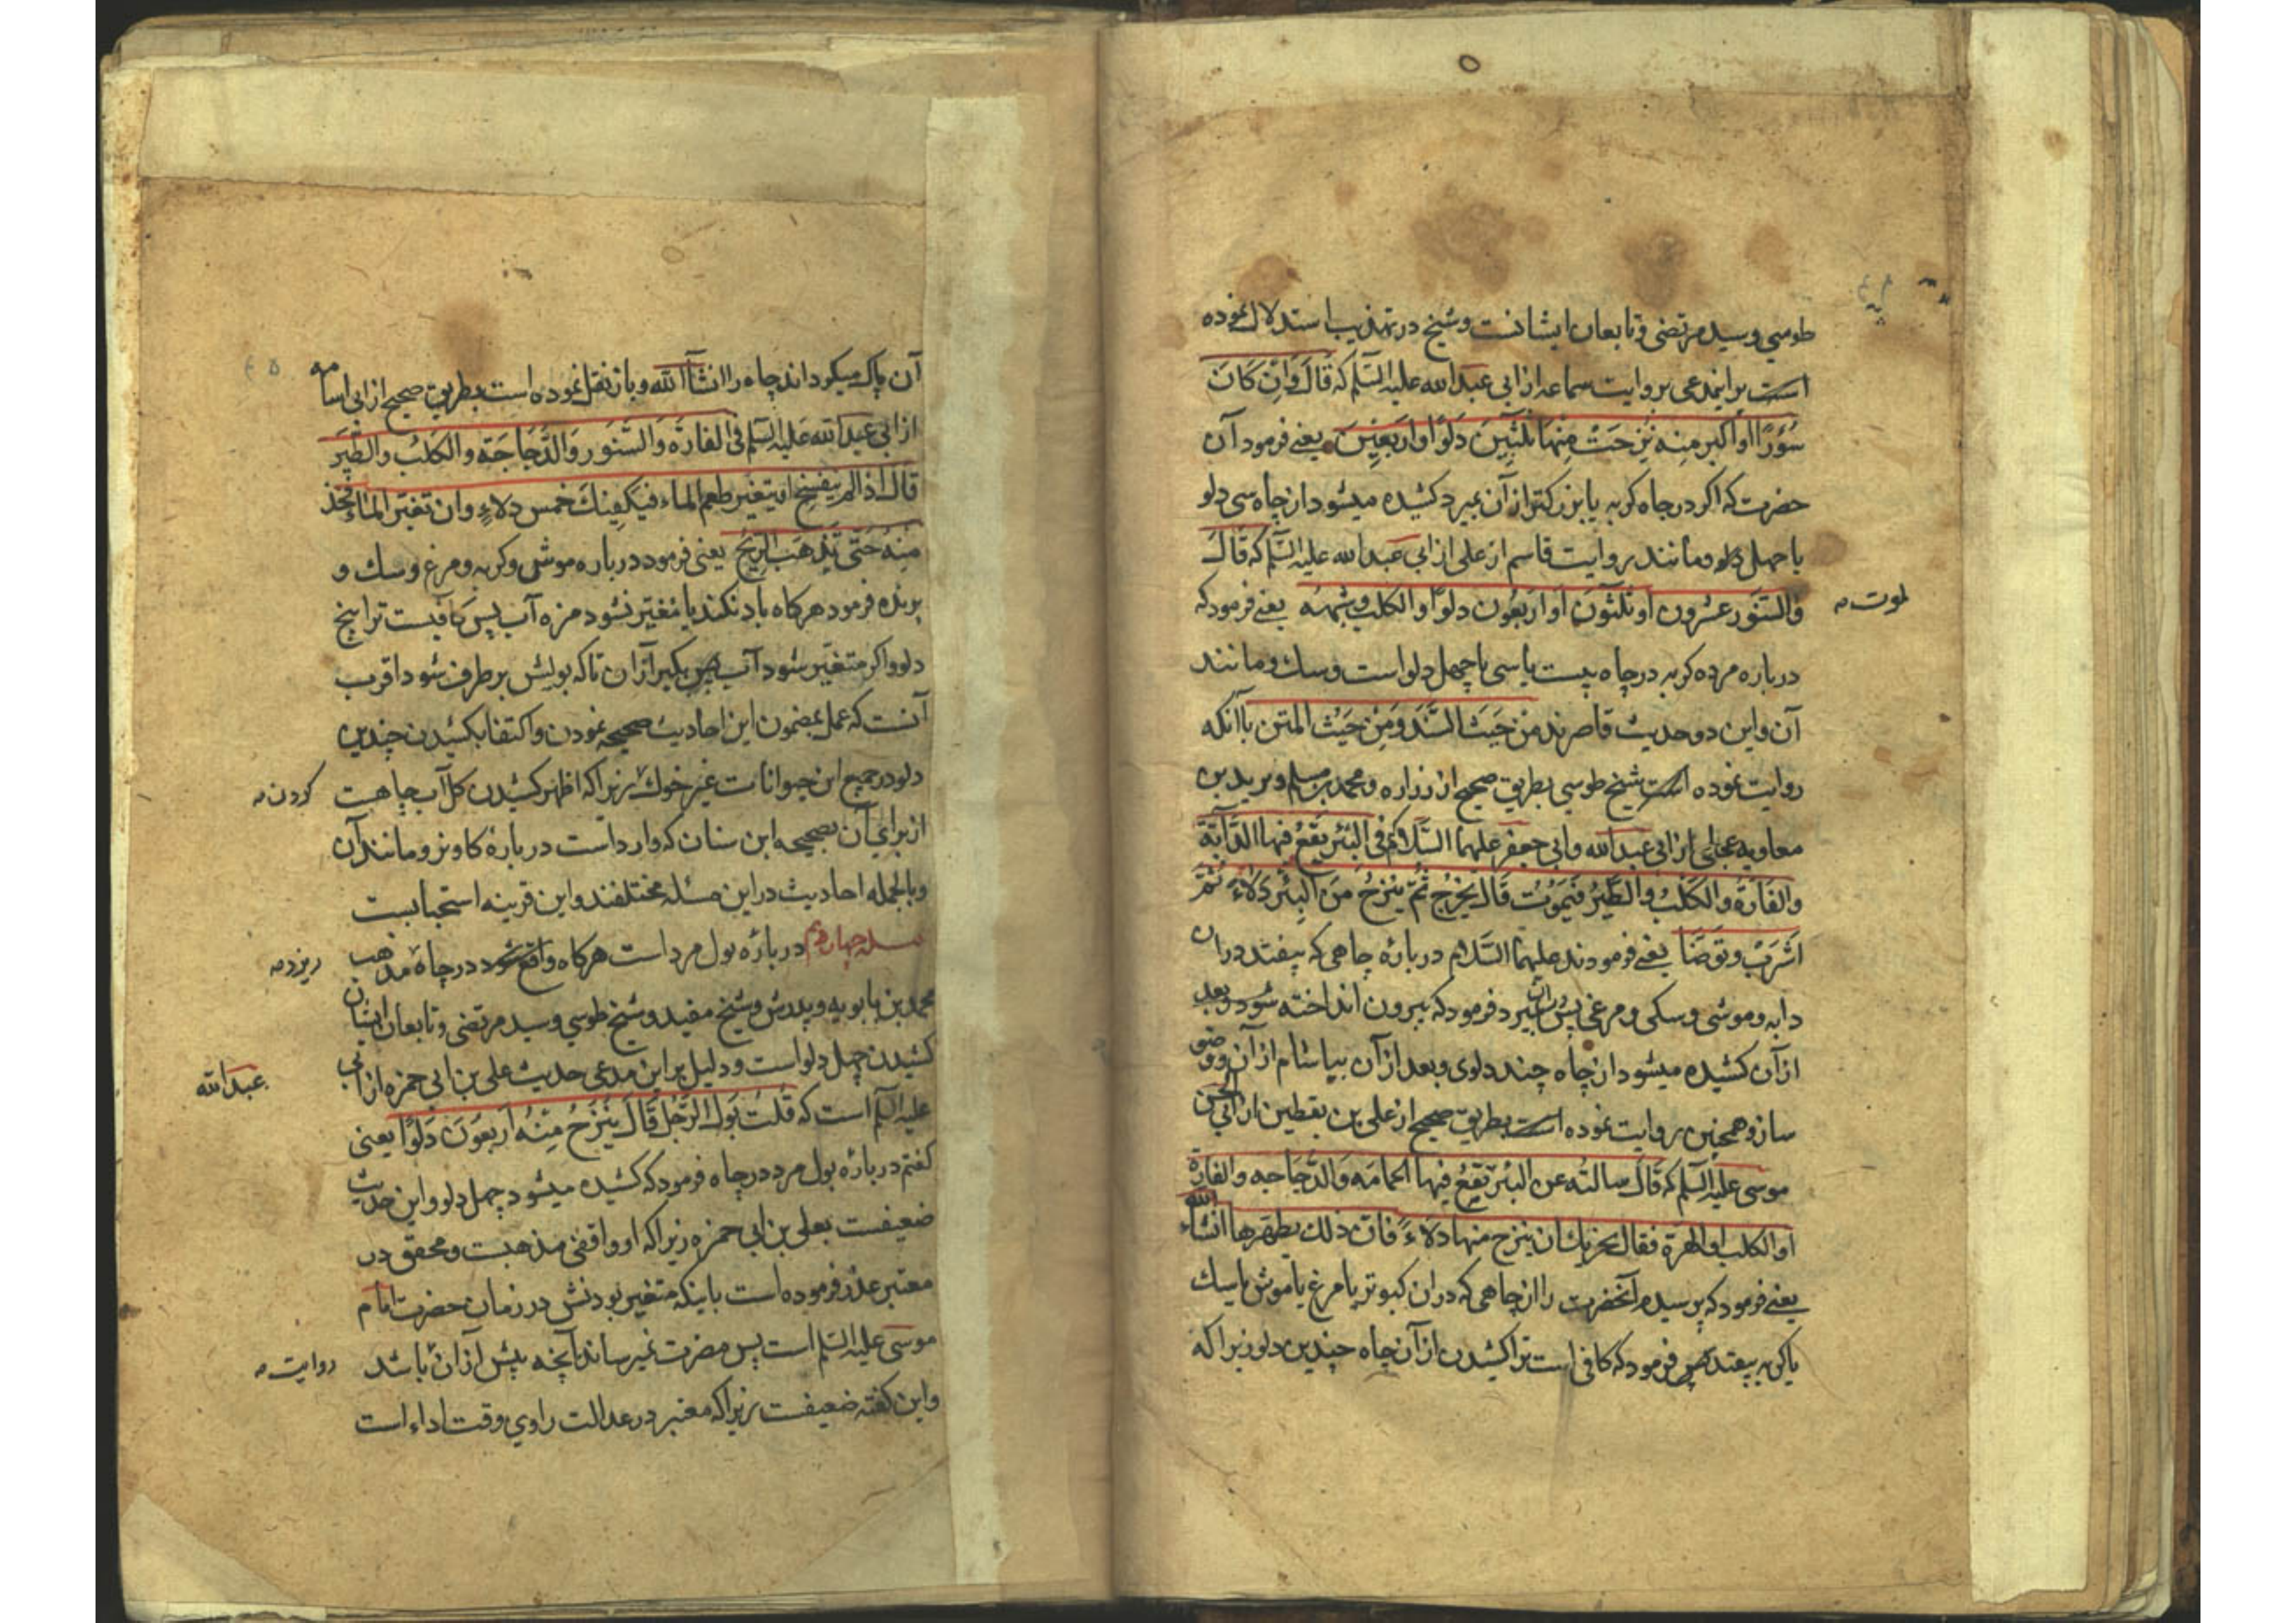 طوسي وسيد مرتضى وتابعان ايشانست وشيخ در تهذيب استدلال نموده
است بر اينمدعى بروايت سماعه از ابي عبد الله عليه السلم كه قَالَ وَاِن كَانَ
سَنَّوْرًا او اكبر مِنه نَزَحتْ مِنها ثلثِينَ دَلوًا او اربَعِينَ يعنے فرمود آن
حضرت كه اكر در چاه كربه يا بزركتر از آن بميرد كشيده ميشود از چاه سى دلو
يا چهل دلو ومانند روايت قاسم از على از ابي عبد الله عليه السلم كه قَالَ
والسنّور عشرون او ثلثونَ او اربَعُون دلوًا والكلب وشبهه يعنے فرمود كه
لموت
درباره مرده كربه در چاه بيست يا سى يا چهل دلو است وسك ومانند
آن واين دو حديث قاصرند مِن حَيثُ السَّنَد ومِن حَيْثُ المتن با آنكه
روايت نموده است شيخ طوسي بطريق صحيح از زراره ومحمد بن مسلم وبريد بن
معاويه عجلي از ابي عبد الله وابي جعفر عليهما السَّلام في البئر يَقعُ فيها الدَّابَّة
والفَارَة والكَلبُ والطَّيرُ فيَموُتُ قَالَ يُخرَجُ ثُمّ يُنزحُ مِنَ البِئر دِلَاءٌ ثُمَّ
اشرَبْ وتوَضَّا يعنے فرمودند عليهما السَّلام درباره چاهى كه بيفتد دران
دابه وموشى وسكى ومرغى پس دران بميرد فرمود كه بيرون انداخته شود وبعد
از آن كشيده ميشود از چاه چند دلوى وبعد از آن بياشام از آن ووضو
ساز وهمچنين روايت نموده است بطريق صحيح از على بن يقطين از ابي الحسن
موسى عليه السلم كه قَالَ سالتُه عن البئر تقعُ فيها الحمامَه والدَّجَاجه والفارة
او الكلب او الهرَة فقال يجزيك ان ينزح منها دِلَاءً فانّ ذلك يطهّرها انشاء الله
يعنے فرمود كه پرسيدم آنحضرت را از چاهى كه دران كبوتر يا مرغ يا موش يا سك
يا كربه بيفتد پس فرمود كه كافى است ترا كشيدن از آن چاه چندين دلو زيرا كه
آن پاك ميكرداند چاه را انشآ الله وباز نقل نموده است بطريق صحيح از ابى اسامه
از ابي عبد الله عَليه السلم في الفارَة وَالسّنور وَالدَّجَاجَة والكَلب والطَّير
قال اذا لم يتفسّخ او يتغير طعم الماء فيكفيك خمس دلاء وان تغيّر الماء فخذ
مِنهُ حَتّى يَذهَب الريحُ يعنى فرمود درباره موش وكربه ومرغ وسك و
پرنده فرمود هركاه باد نكند يا متغيّر نشود مزه آب پس كافيست ترا پنج
دلو واكر متغيّر شود آب پس بكير از ان تا كه بويش برطرف شود اقرب
آنست كه عمل بمضمون اين احاديث صحيحه نمودن واكتفا بكشيدن چندين
دلو در جميع اين حيوانات غير خوك زيرا كه اظهر كشيدن كل آب چاهست
كردن
از براى آن بصحيحه ابن سنان كه وارد است درباره كاو نر ومانند آن
وبالجمله احاديث در اين مسئله مختلفند واين قرينه استحبابست
مسئله چهاردهم درباره بول مرد است هركاه واقع شود در چاه مذهب
ريزد
محمد بن بابويه وپدرش وشيخ مفيد وشيخ طوسي وسيد مرتضى وتابعان ايشان
كشيدن چهل دلو است ودليل بر اين مدعى حديث على بن ابي حمزه از ابي
عبد الله
عليه السلم است كه قلتُ بَولُ الرَّجُل قَالَ يُنزَحُ مِنْهُ اربعُونَ دَلوًا يعنى
كفتم درباره بول مرد در چاه فرمود كه كشيده ميشود چهل دلو واين حديث
ضعيفست بعلى بن ابي حمزه زيرا كه او واقفى مذهبست ومحقق در
معتبر عذر فرموده است باينكه متغير بودنش در زمان حضرت امام
موسى عليه السلم است پس مضرت نميرساند آنچه پيش از ان باشد
روايت
واين كفته ضعيفست زيرا كه معتبر در عدالت راوي وقت اداء است